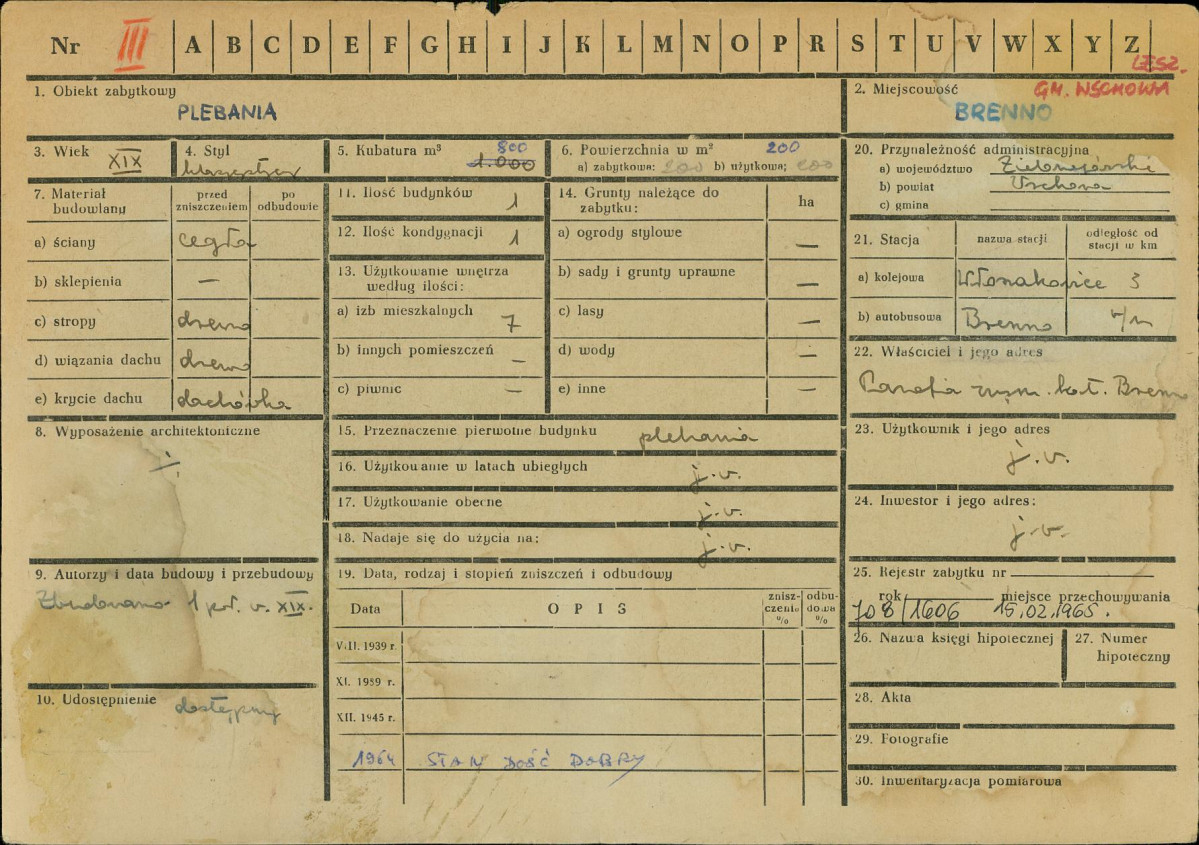 Nr III A B C D E F G H I J K L M N O P R S T U V W X Y Z
LESZ.
1. Obiekt zabytkowy
PLEBANIA
2. Miejscowość
GM. WSCHOWA
BRENNO
3. Wiek XIX
4. Styl
5. Kubatura m³ 800
1.000
6. Powierzchnia w m² 200
a) zabytkowa: 200 b) użytkowa: 200
7. Materiał budowlany
przed zniszczeniem
po odbudowie
a) ściany cegła
b) sklepienia —
c) stropy drewno
d) wiązania dachu drewno
e) krycie dachu dachówka
8. Wyposażenie architektoniczne
9. Autorzy i data budowy i przebudowy
Zbudowano 1 poł. w. XIX.
10. Udostępnienie dostępny
11. Ilość budynków 1
12. Ilość kondygnacji 1
13. Użytkowanie wnętrza
według ilości:
a) izb mieszkalnych 7
b) innych pomieszczeń —
c) piwnic —
14. Grunty należące do
zabytku:
ha
a) ogrody stylowe —
b) sady i grunty uprawne —
c) lasy —
d) wody —
e) inne —
15. Przeznaczenie pierwotne budynku plebania
16. Użytkowanie w latach ubiegłych j.w.
17. Użytkowanie obecne j.w.
18. Nadaje się do użycia na: j.w.
19. Data, rodzaj i stopień zniszczeń i odbudowy
Data
OPIS
znisz-
czenie
%
odbu-
dowa
%
VIII. 1939 r.
XI. 1939 r.
XII. 1945 r.
1964 STAN DOŚĆ DOBRY
20. Przynależność administracyjna
a) województwo Zielonogórskie
b) powiat Wschowa
c) gmina
21. Stacja
nazwa stacji
odległość od
stacji w km
a) kolejowa Włoszakowice 3
b) autobusowa Brenno n/m
22. Właściciel i jego adres
Parafia rzym. kat. Brenno
23. Użytkownik i jego adres
j.w.
24. Inwestor i jego adres:
j.w.
25. Rejestr zabytku nr
rok miejsce przechowywania
708/1606 15.02.1965.
26. Nazwa księgi hipotecznej
27. Numer
hipoteczny
28. Akta
29. Fotografie
30. Inwentaryzacja pomiarowa